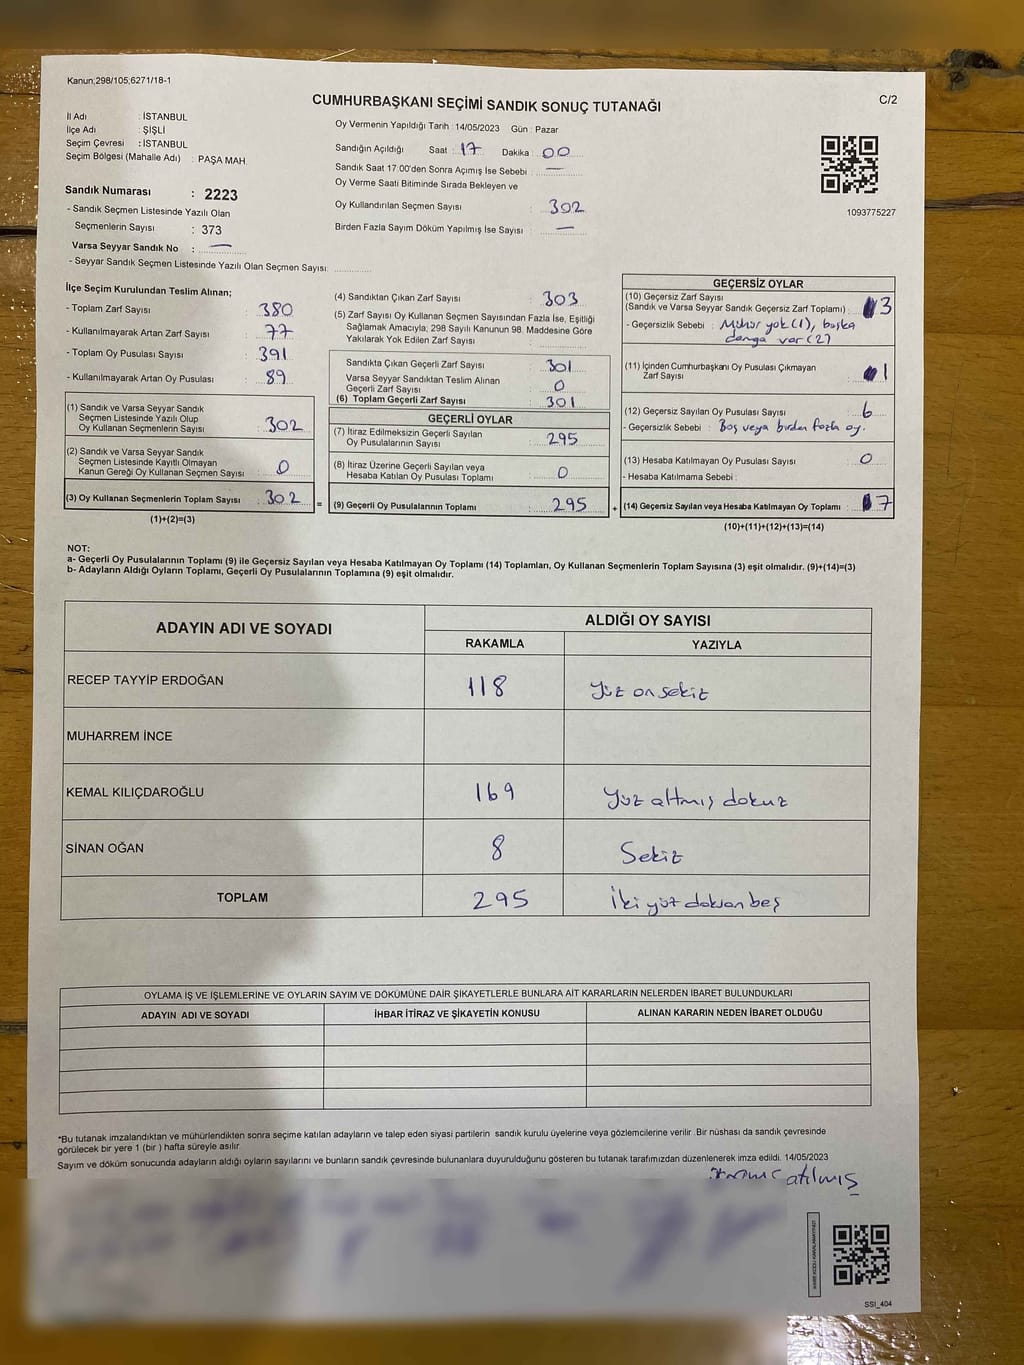 Kanun;298/105;6271/18-1
C/2
CUMHURBAŞKANI SEÇİMİ SANDIK SONUÇ TUTANAĞI
İl Adı : İSTANBUL
İlçe Adı : ŞİŞLİ
Seçim Çevresi : İSTANBUL
Seçim Bölgesi (Mahalle Adı) : PAŞA MAH.
Sandık Numarası : 2223
- Sandık Seçmen Listesinde Yazılı Olan
Seçmenlerin Sayısı : 373
Varsa Seyyar Sandık No : —
- Seyyar Sandık Seçmen Listesinde Yazılı Olan Seçmen Sayısı:
Oy Vermenin Yapıldığı Tarih : 14/05/2023 Gün : Pazar
Sandığın Açıldığı Saat : 17 Dakika : 00
Sandık Saat 17.00'den Sonra Açımış İse Sebebi : —
Oy Verme Saati Bitiminde Sırada Bekleyen ve
Oy Kullandırılan Seçmen Sayısı : 302
Birden Fazla Sayım Döküm Yapılmış İse Sayısı : —
1093775227
İlçe Seçim Kurulundan Teslim Alınan;
- Toplam Zarf Sayısı : 380
- Kullanılmayarak Artan Zarf Sayısı : 77
- Toplam Oy Pusulası Sayısı : 391
- Kullanılmayarak Artan Oy Pusulası : 89
(1) Sandık ve Varsa Seyyar Sandık
Seçmen Listesinde Yazılı Olup
Oy Kullanan Seçmenlerin Sayısı : 302
(2) Sandık ve Varsa Seyyar Sandık
Seçmen Listesinde Kayıtlı Olmayan
Kanun Gereği Oy Kullanan Seçmen Sayısı : 0
(3) Oy Kullanan Seçmenlerin Toplam Sayısı : 302 =
(1)+(2)=(3)
(4) Sandıktan Çıkan Zarf Sayısı : 303
(5) Zarf Sayısı Oy Kullanan Seçmen Sayısından Fazla İse, Eşitliği
Sağlamak Amacıyla; 298 Sayılı Kanunun 98. Maddesine Göre
Yakılarak Yok Edilen Zarf Sayısı :
Sandıkta Çıkan Geçerli Zarf Sayısı : 301
Varsa Seyyar Sandıktan Teslim Alınan
Geçerli Zarf Sayısı : 0
(6) Toplam Geçerli Zarf Sayısı : 301
GEÇERLİ OYLAR
(7) İtiraz Edilmeksizin Geçerli Sayılan
Oy Pusulalarının Sayısı : 295
(8) İtiraz Üzerine Geçerli Sayılan veya
Hesaba Katılan Oy Pusulası Toplamı : 0
(9) Geçerli Oy Pusulalarının Toplamı : 295 +
GEÇERSİZ OYLAR
(10) Geçersiz Zarf Sayısı
(Sandık ve Varsa Seyyar Sandık Geçersiz Zarf Toplamı) : 3
- Geçersizlik Sebebi : Mühür yok (1), başka
damga var (2)
(11) İçinden Cumhurbaşkanı Oy Pusulası Çıkmayan
Zarf Sayısı : 1
(12) Geçersiz Sayılan Oy Pusulası Sayısı : 6
- Geçersizlik Sebebi : Boş veya birden fazla oy.
(13) Hesaba Katılmayan Oy Pusulası Sayısı : 0
- Hesaba Katılmama Sebebi :
(14) Geçersiz Sayılan veya Hesaba Katılmayan Oy Toplamı : 7
(10)+(11)+(12)+(13)=(14)
NOT:
a- Geçerli Oy Pusulalarının Toplamı (9) ile Geçersiz Sayılan veya Hesaba Katılmayan Oy Toplamı (14) Toplamları, Oy Kullanan Seçmenlerin Toplam Sayısına (3) eşit olmalıdır. (9)+(14)=(3)
b- Adayların Aldığı Oyların Toplamı, Geçerli Oy Pusulalarının Toplamına (9) eşit olmalıdır.
ADAYIN ADI VE SOYADI ALDIĞI OY SAYISI
RAKAMLA YAZIYLA
RECEP TAYYİP ERDOĞAN 118 Yüz on sekiz
MUHARREM İNCE
KEMAL KILIÇDAROĞLU 169 Yüz altmış dokuz
SİNAN OĞAN 8 Sekiz
TOPLAM 295 İki yüz doksan beş
OYLAMA İŞ VE İŞLEMLERİNE VE OYLARIN SAYIM VE DÖKÜMÜNE DAİR ŞİKAYETLERLE BUNLARA AİT KARARLARIN NELERDEN İBARET BULUNDUKLARI
ADAYIN ADI VE SOYADI İHBAR İTİRAZ VE ŞİKAYETİN KONUSU ALINAN KARARIN NEDEN İBARET OLDUĞU
*Bu tutanak imzalandıktan ve mühürlendikten sonra seçime katılan adayların ve talep eden siyasi partilerin sandık kurulu üyelerine veya gözlemcilerine verilir. Bir nüshası da sandık çevresinde
görülecek bir yere 1 (bir) hafta süreyle asılır.
Sayım ve döküm sonucunda adayların aldığı oyların sayılarını ve bunların sandık çevresinde bulunanlara duyurulduğunu gösteren bu tutanak tarafımızdan düzenlenerek imza edildi. 14/05/2023
atılmış
SSI_404